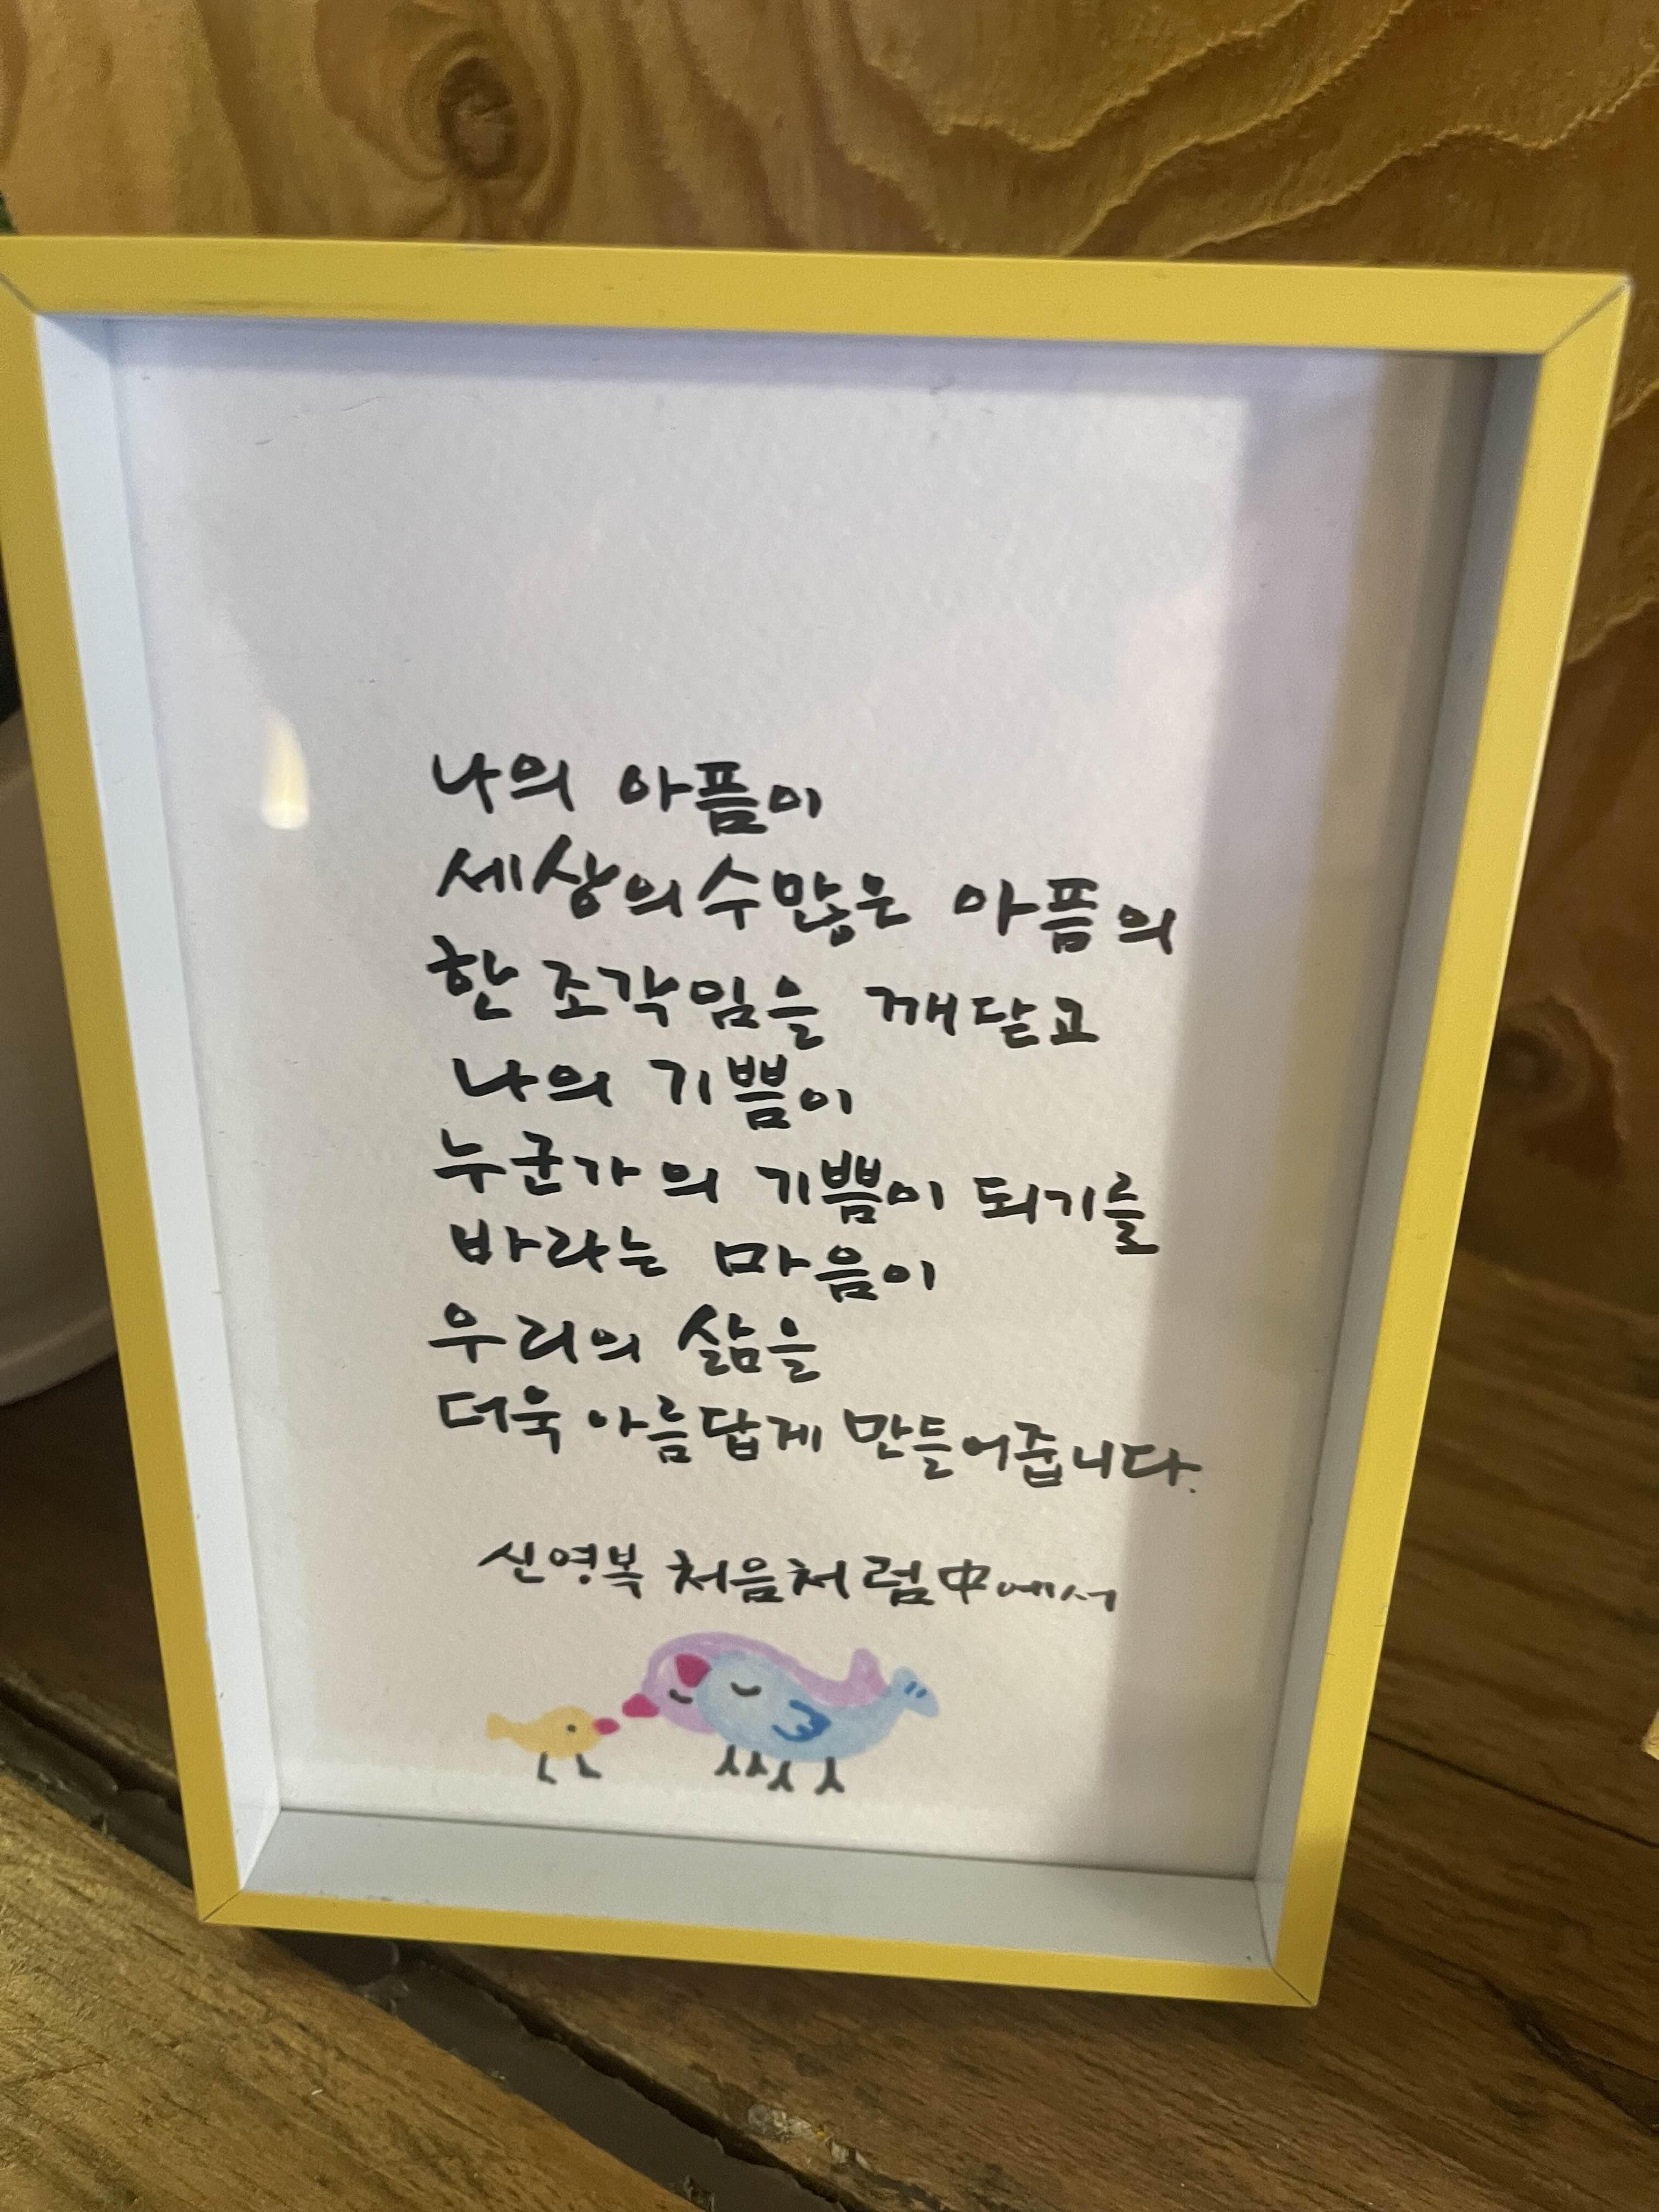 나의 아픔이
세상의 수많은 아픔의
한 조각임을 깨닫고
나의 기쁨이
누군가의 기쁨이 되기를
바라는 마음이
우리의 삶을
더욱 아름답게 만들어줍니다.
신영복 처음처럼中에서